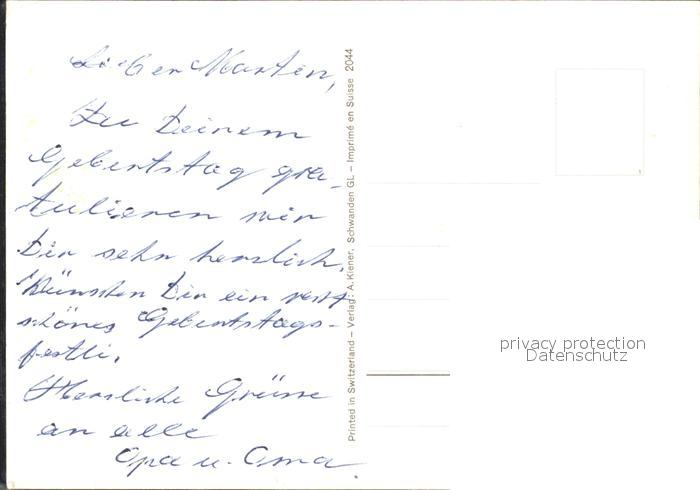 Lieber Martin,
Zu Deinem
Geburtstag gra-
tulieren wir
Dir sehr herzlich.
Wünschen Dir ein recht
schönes Geburtstags-
festli.
Herzliche Grüsse
an alle
Opa u. Oma.
Printed in Switzerland – Verlag: A. Kiener, Schwanden GL – Imprimé en Suisse 2044
privacy protection
Datenschutz